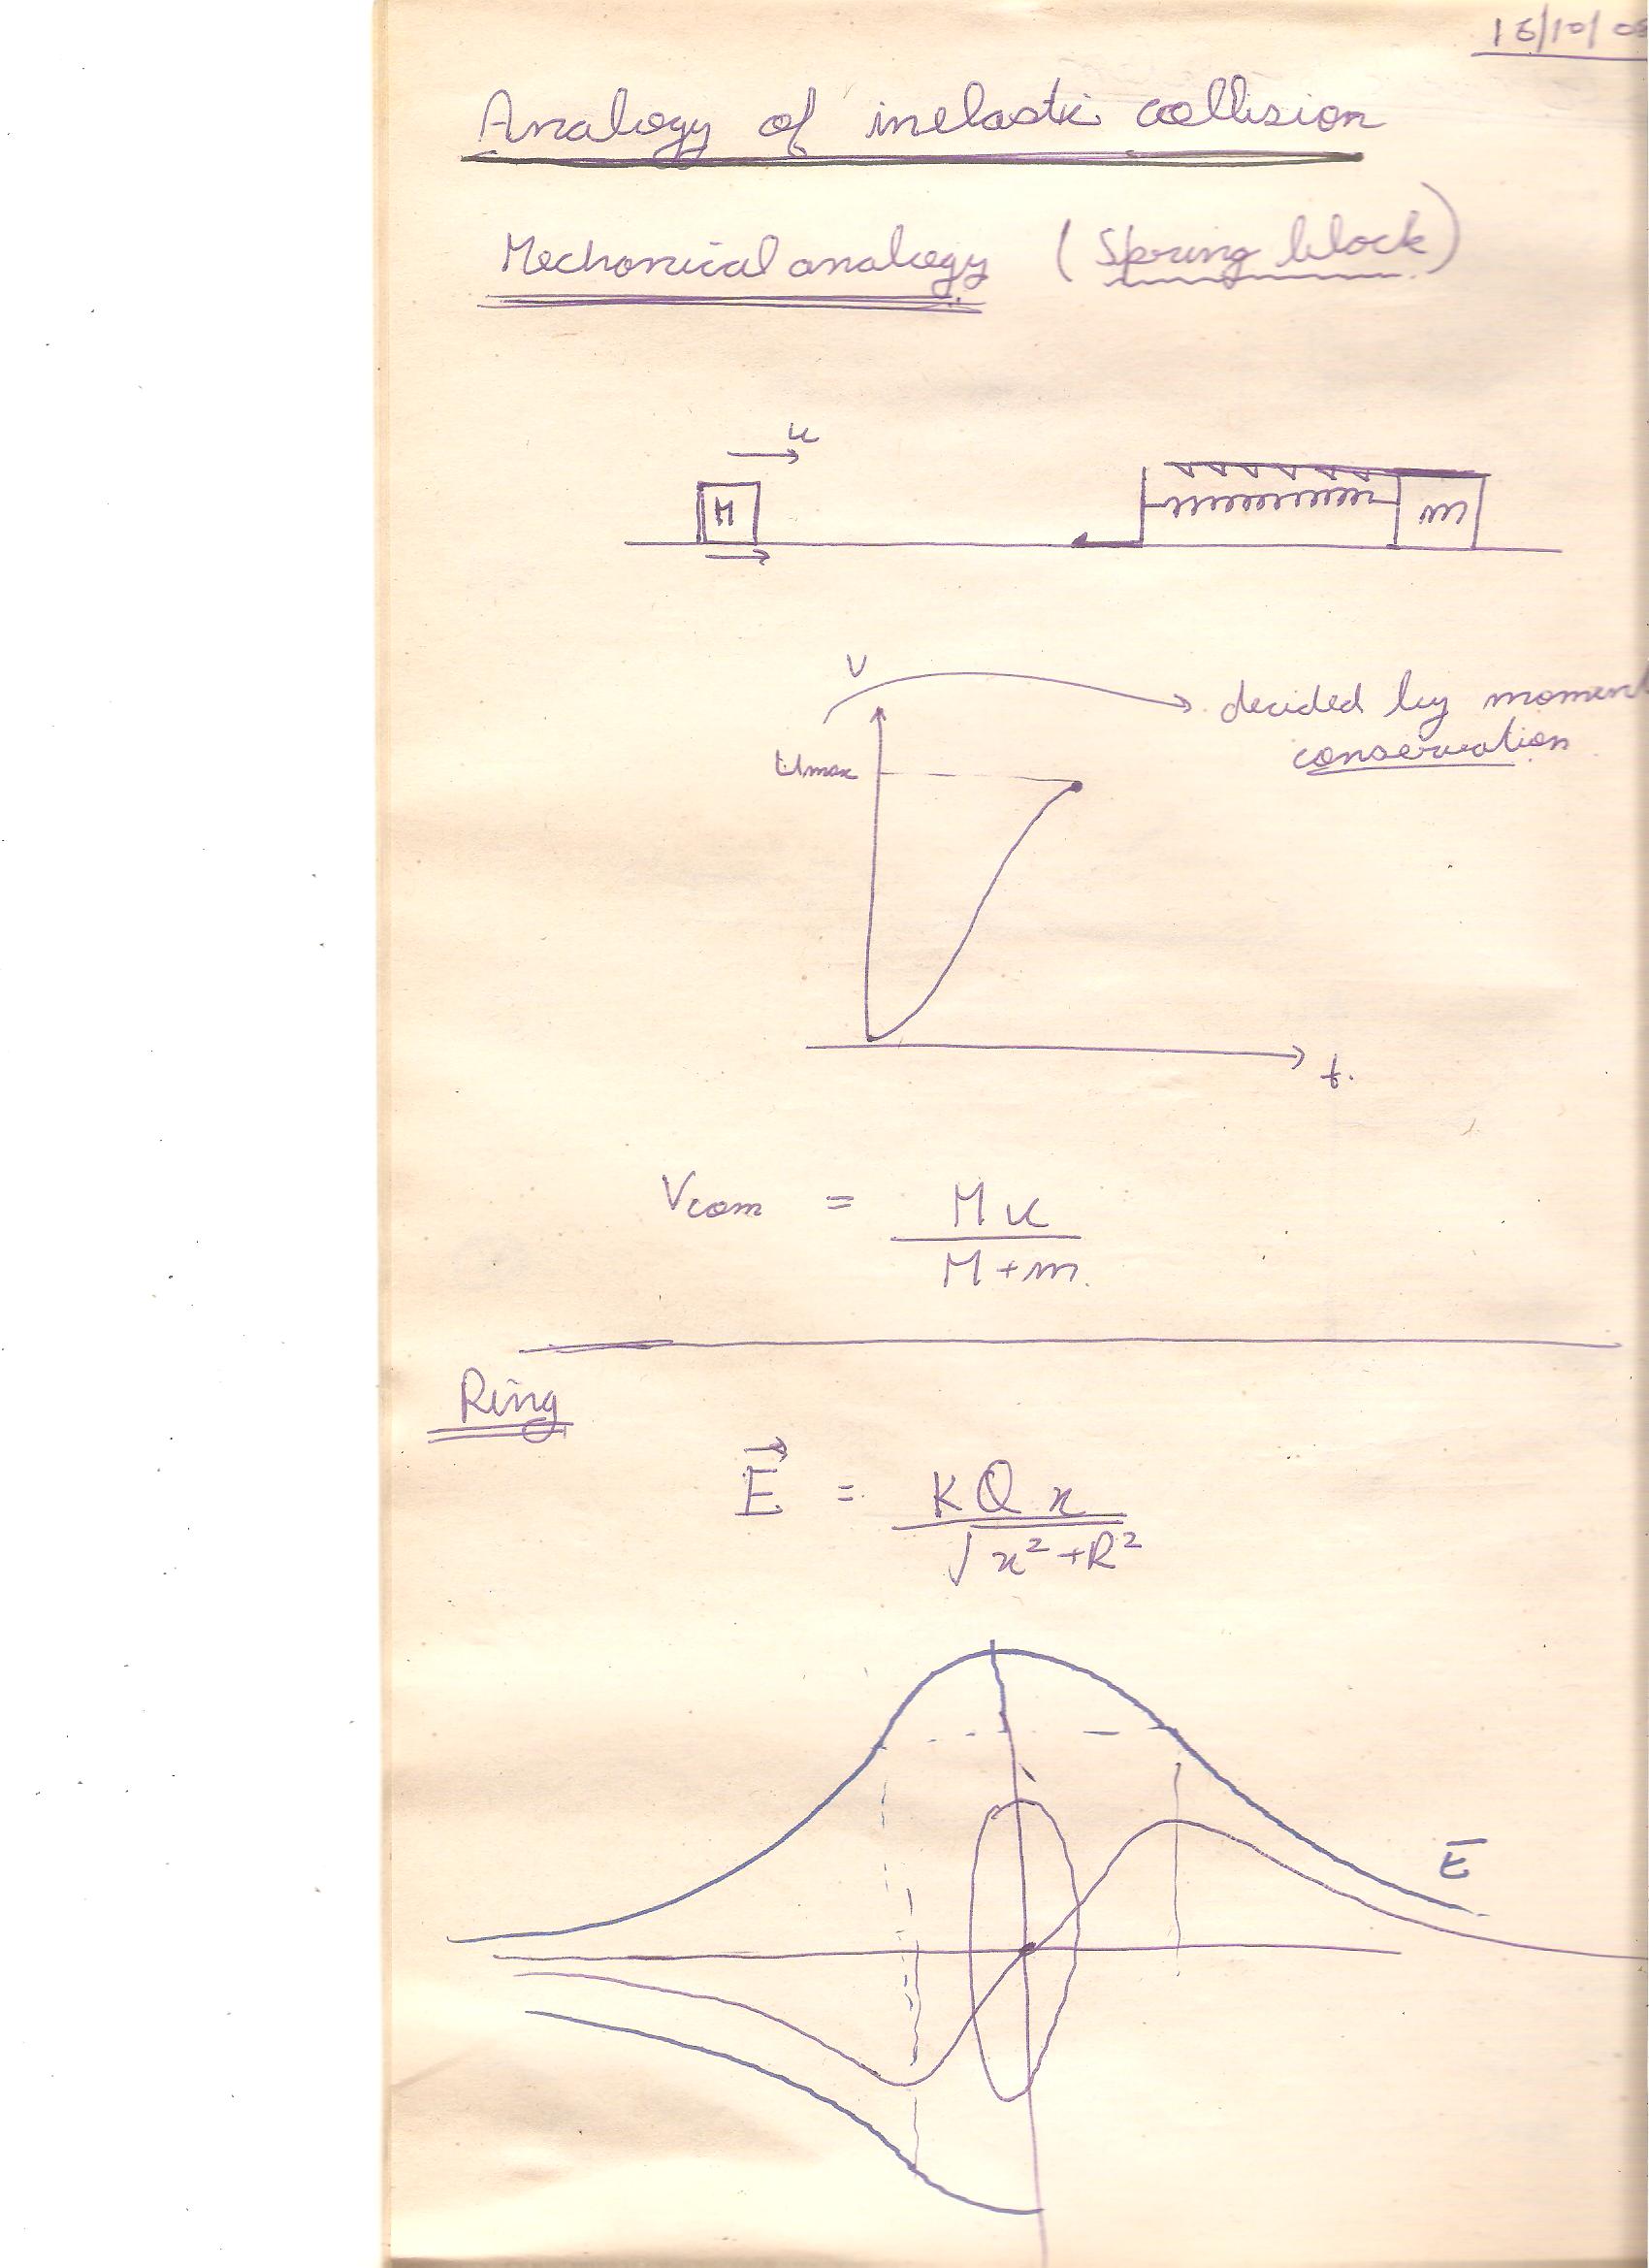 Analogy of inelastic collision
Mechanical analogy (Spring block)
u
M
m
V
decided by moment
conservation
Umax
t.
Vcom = Mu
M+m.
Ring
E = KQx
√x²+R²
E